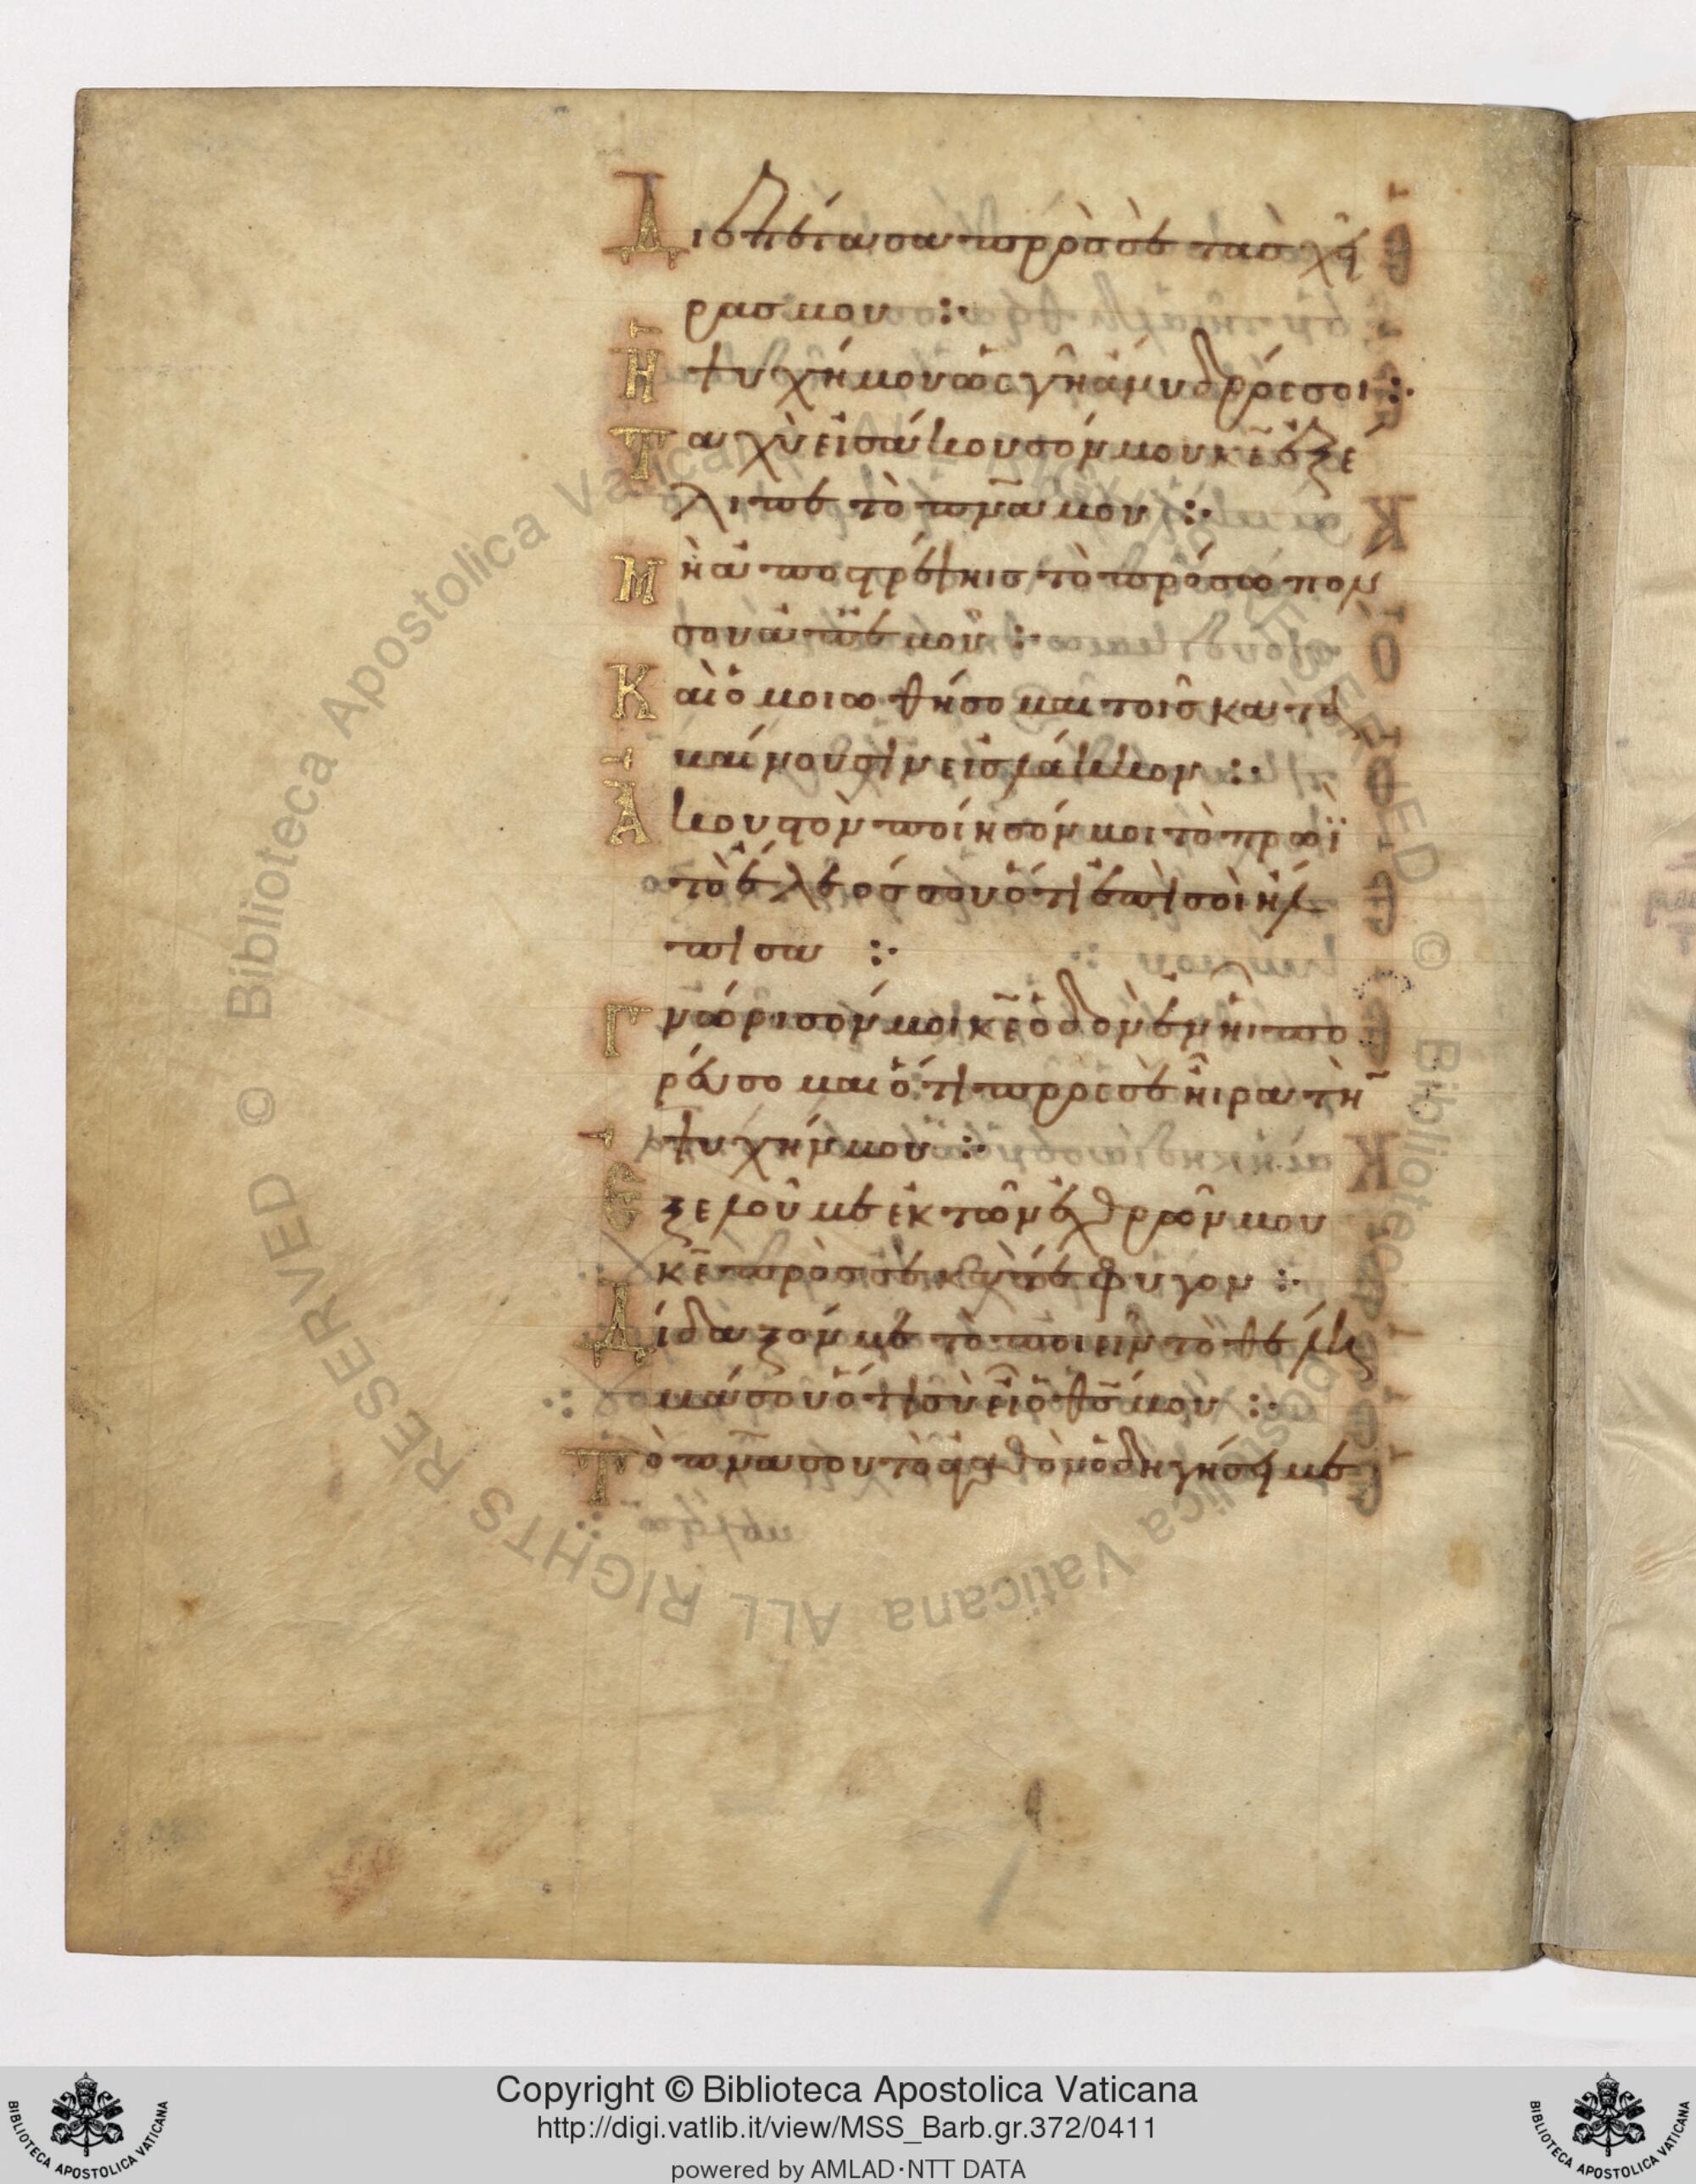 Διεπέτασα πρὸς σὲ τὰς χεῖ
ρας μου :·
Ἡ ψυχή μου ὡς γῆ ἄνυδρός σοι :·
Ταχὺ εἰσάκουσόν μου κ̅ε̅ ἐξέ
λιπε τὸ πνα μου :·
Μὴ ἀποστρέψηις τὸ πρόσωπον
σου ἀπ ἐμοῦ :·
Καὶ ὁμοιωθήσομαι τοῖς κατα
βαίνουσιν εἰς λάκκον :·
Ἀκουστὸν ποίησόν μοι τὸ πρωῒ
τὸ ἔλεός σου ὅτι ἐπὶ σοὶ ἤλ
πισα :·
Γνώρισόν μοι κ̅ε̅ ὁδὸν ἐν ἧι πο
ρεύσομαι ὅτι πρὸς σὲ ἦρα τὴν
ψυχήν μου :·
Ἐξελοῦ με ἐκ τῶν ἐχθρῶν μου
κ̅ε̅ πρὸς σὲ κατέφυγον :·
Δίδαξόν με τὸ ποιεῖν τὸ θέλη
μά σου ὅτι σὺ εἶ ὁ θς μου :·
Τὸ πνα σου τὸ ἀγαθὸν ὁδηγήσει με
Biblioteca Apostolica Vaticana
ALL RIGHTS RESERVED ©
Copyright © Biblioteca Apostolica Vaticana
http://digi.vatlib.it/view/MSS_Barb.gr.372/0411
powered by AMLAD·NTT DATA
BIBLIOTECA APOSTOLICA VATICANA
BIBLIOTECA APOSTOLICA VATICANA